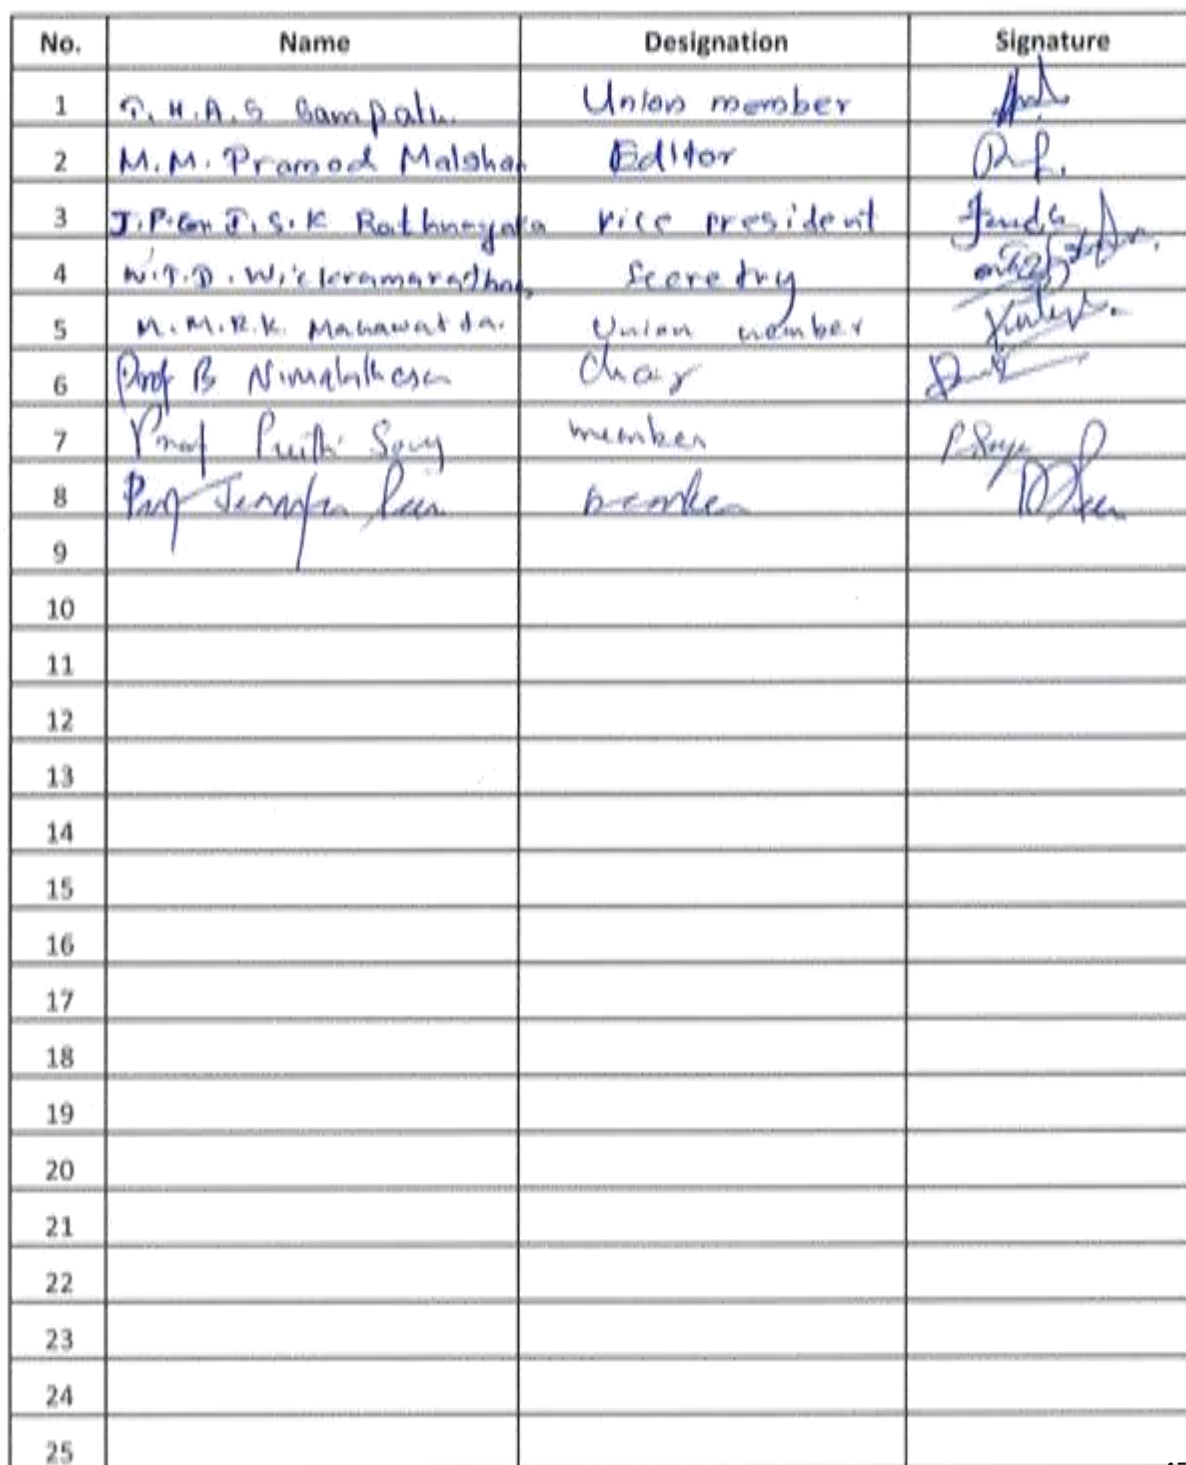 No. Name Designation Signature
1 T. H. A. S Sampath. Union member
2 M. M. Pramod Malshan Editor
3 J.P. T. S. K Rathnayaka vice president
4 W. T. D. Wickramarathna Secretry
5 M. M. R. K. Mahawatta. Union member
6 Prof B Nimalathasan Chair
7 Prof member
8 Prof Jennifer member
9
10
11
12
13
14
15
16
17
18
19
20
21
22
23
24
25